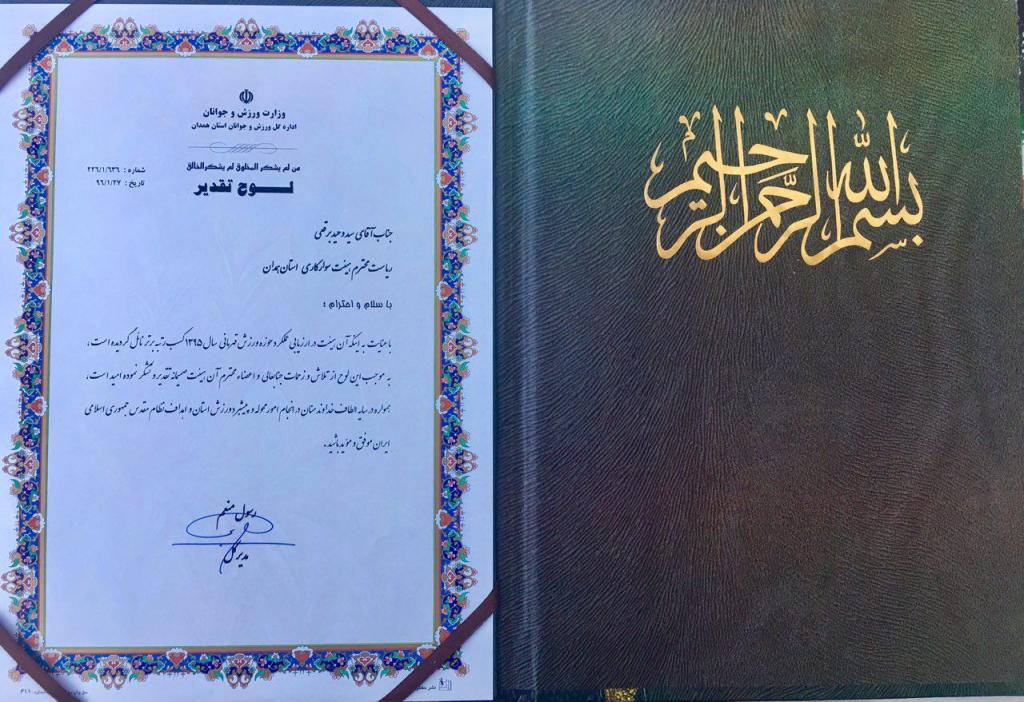 وزارت ورزش و جوانان
اداره کل ورزش و جوانان استان همدان
من لم یشکر المخلوق لم یشکر الخالق
شماره : ۲۲۶/۱/۶۳۶
لوح تقدیر
تاریخ : ۹۶/۱/۲۷
جناب آقای سید وحید برقعی
ریاست محترم هیئت سوارکاری استان همدان
با سلام و احترام ؛
با عنایت به اینکه آن هیئت در ارزیابی عملکرد حوزه ورزش قهرمانی سال ۱۳۹۵ کسب رتبه برتر نائل گردیده است ،
به موجب این لوح از تلاش و زحمات جنابعالی و اعضاء محترم آن هیئت صمیمانه تقدیر و تشکر نموده امید است ،
همواره در سایه الطاف خداوند منان در انجام امور محوله و پیشبرد ورزش استان و اهداف نظام مقدس جمهوری اسلامی
ایران موفق و مؤید باشید .
رسول منعم
مدیر کل
بسم الله الرحمن الرحیم